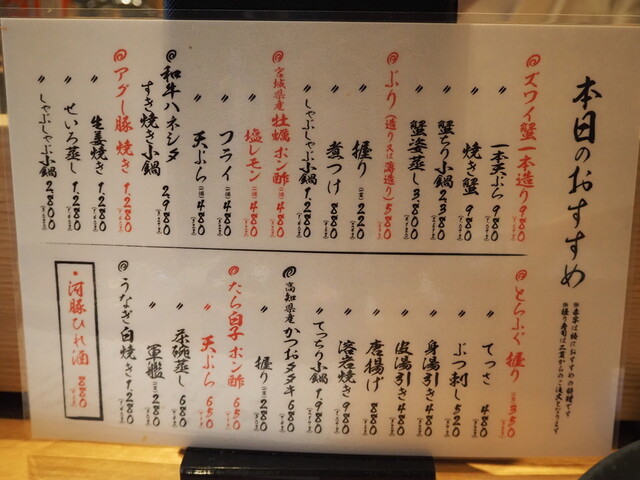 本日のおすすめ
※赤字は特におすすめの料理です
※握り寿司は二貫からのご注文となります
@ズワイ蟹一本造り980
〃 一本天ぷら980
〃 焼き蟹980
蟹ちり小鍋2380
蟹姿蒸し3.80
@ぶり(造り又は薄造り)580
〃 握り(一貫)220
〃 煮つけ880
〃 しゃぶしゃぶ小鍋1.280
@宮城県産 牡蠣 ポン酢480
〃 塩レモン480
〃 フライ(二個)480
〃 天ぷら(二個)480
@和牛ハネシタ
すき焼き小鍋2980
@アグー豚 焼き1.280
〃 生姜焼き1.280
〃 せいろ蒸し1.280
〃 しゃぶしゃぶ小鍋2.080
@とらふぐ 握り(一貫)350
〃 てっさ480
〃 ぶつ刺し520
〃 身湯引き480
〃 皮湯引き480
〃 唐揚げ880
〃 溶岩焼き980
〃 てっちり小鍋1.980
@高知県産 かつおタタキ680
〃 握り(一貫)280
@たら白子 ポン酢650
〃 天ぷら650
〃 茶碗蒸し680
〃 軍艦(一貫)280
@うなぎ 白焼き1.280
・河豚ひれ酒880